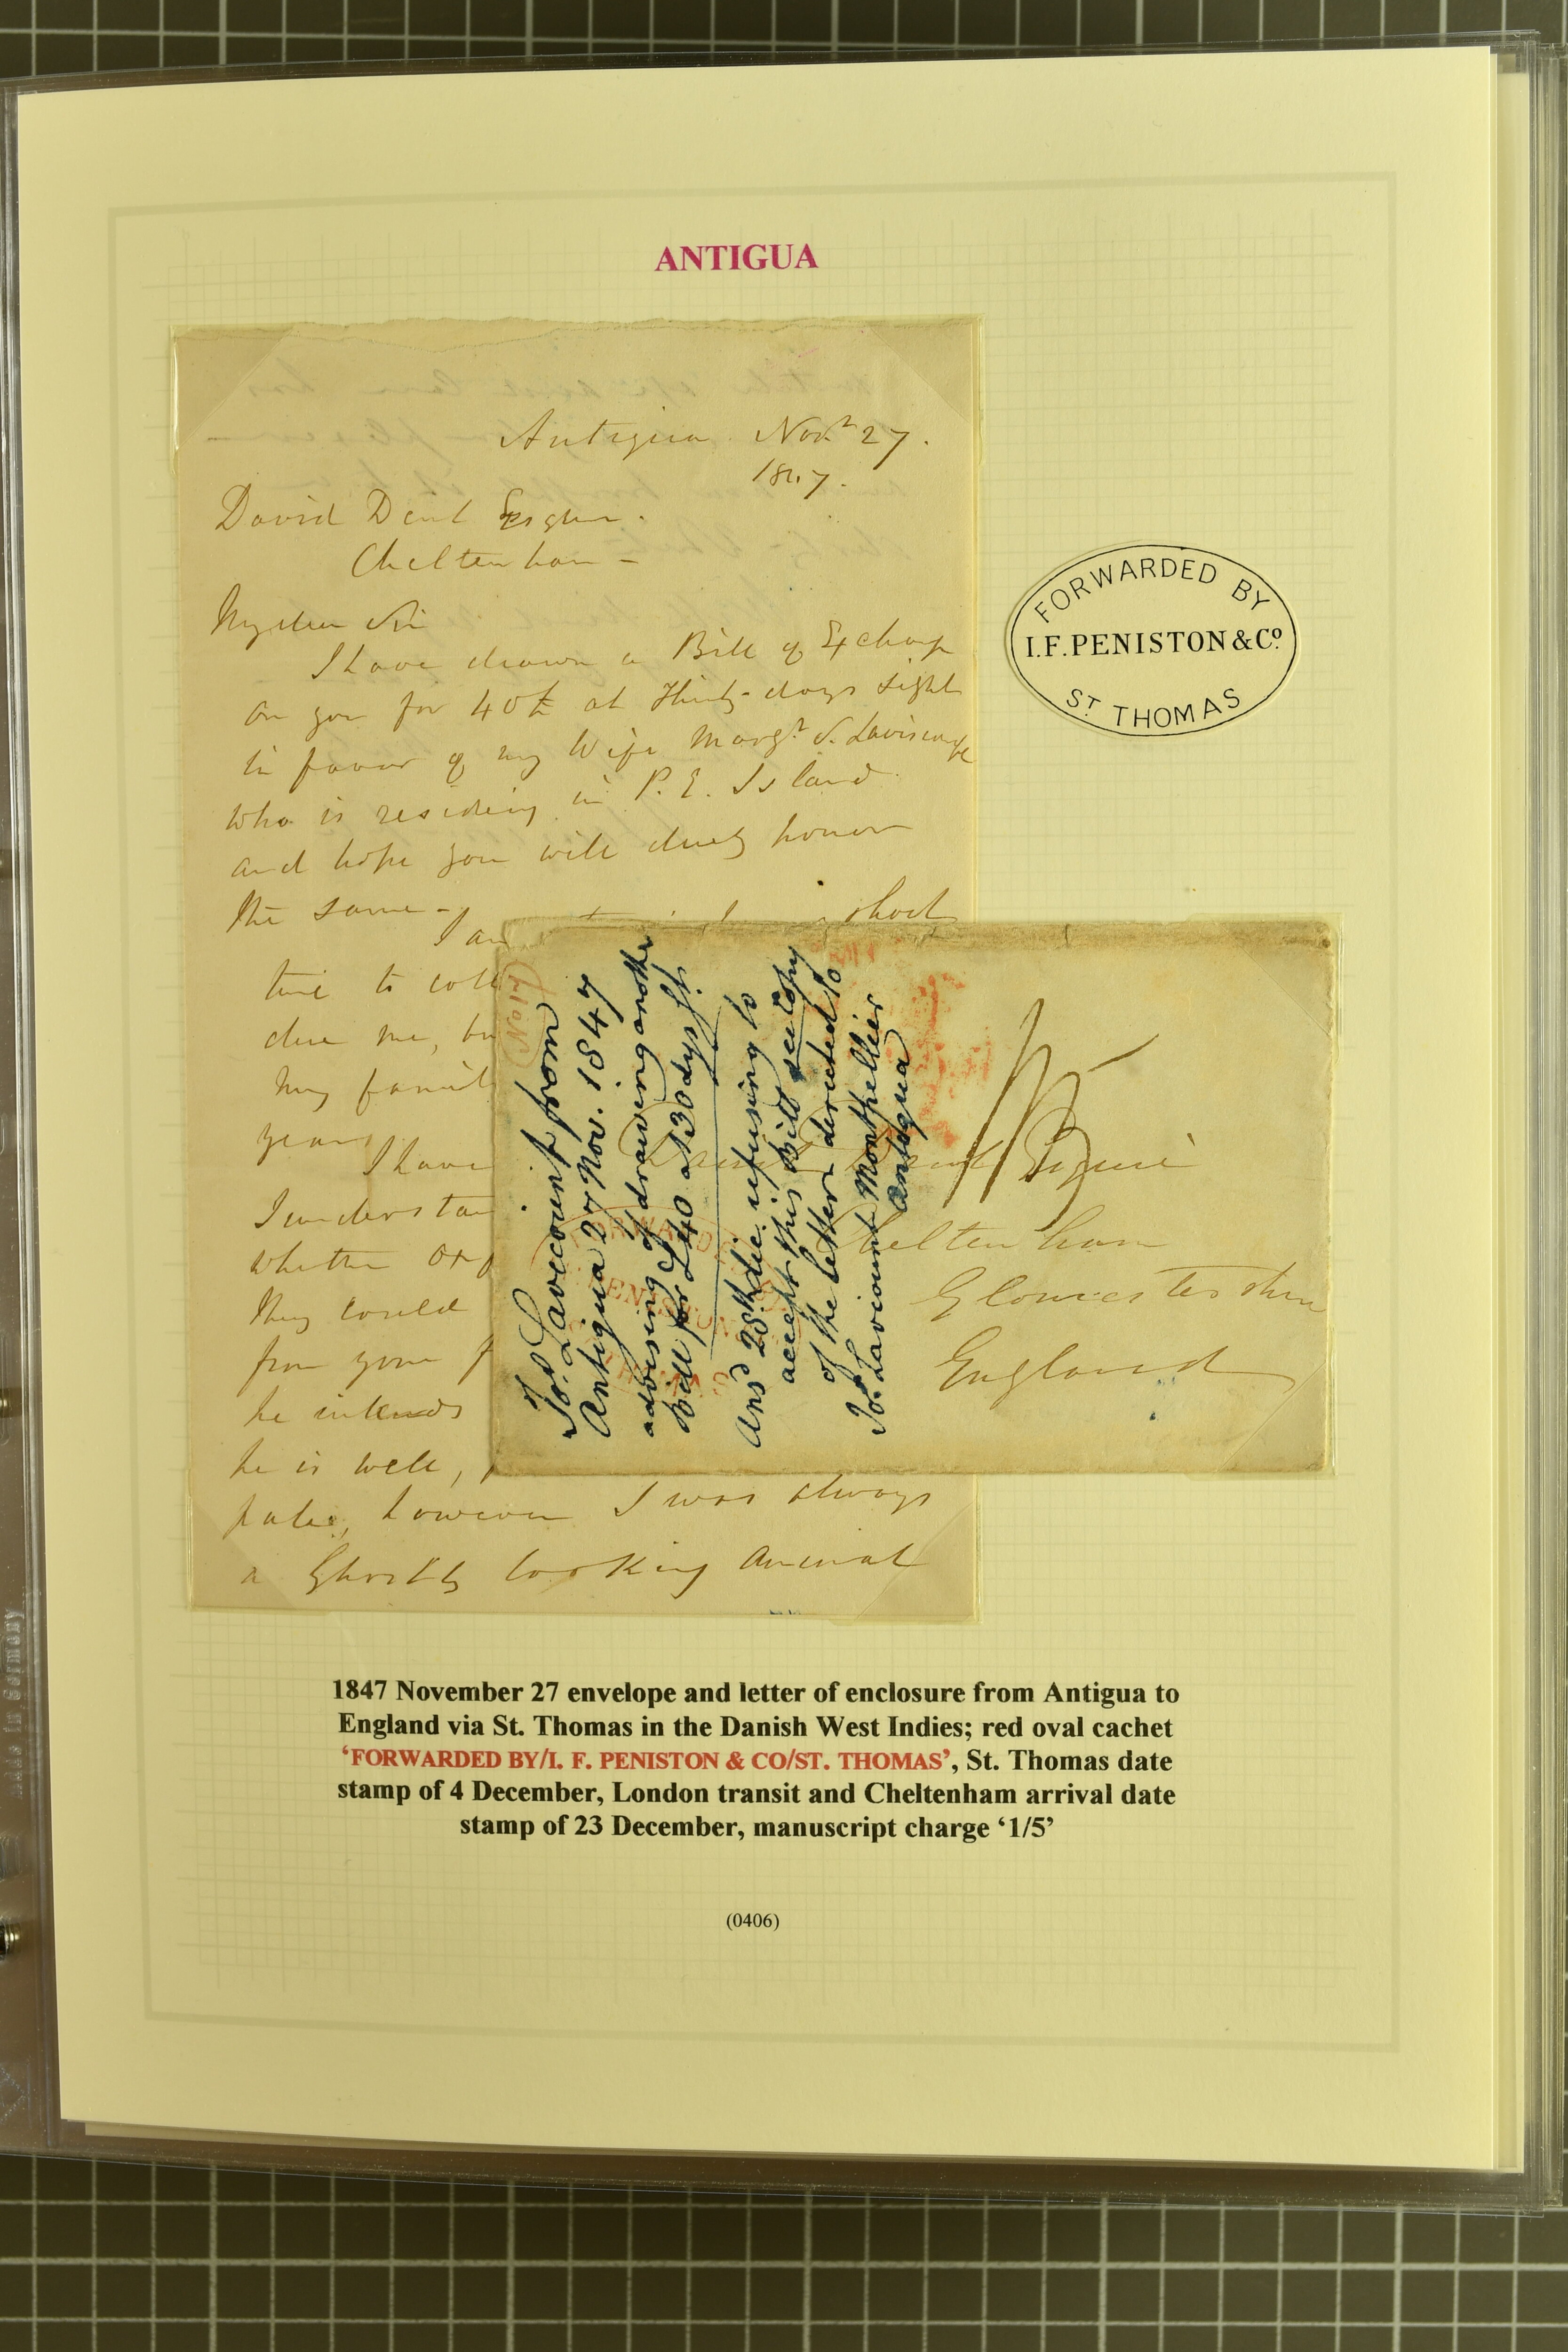 ANTIGUA
Antigua Novr 27.
1847.
David Dent Esquire.
Cheltenham -
My dear Sir
I have drawn a Bill of Exchange
on you for 40£ at Thirty days sight
in favor of my Wife Margt S. Laviscount
who is residing in P. E. Island
and hope you will duly honor
the same -
I am
short
time to coll
due me, bu
my famil
years.
I have
I understan
whether
they could
from your
he intends
he is well,
pale, however I was always
a Ghostly looking animal
FORWARDED BY
I.F. PENISTON & Co.
ST. THOMAS
Jos. Laviscount from
Antigua 27 Nov. 1847
advising of drawing another
Bill for £40 at 30 dys St.
Ansd 28th Dec. refusing to
accept this Bill see Copy
of the letter directed to
Jos. Laviscount Montpellier
Antigua
1/5
David Dent Esquire
Cheltenham
Gloucestershire
England
FORWARDED BY
PENISTON
ST THOMAS
1847 November 27 envelope and letter of enclosure from Antigua to
England via St. Thomas in the Danish West Indies; red oval cachet
‘FORWARDED BY/I. F. PENISTON & CO/ST. THOMAS’, St. Thomas date
stamp of 4 December, London transit and Cheltenham arrival date
stamp of 23 December, manuscript charge ‘1/5’
(0406)
Made in Germany